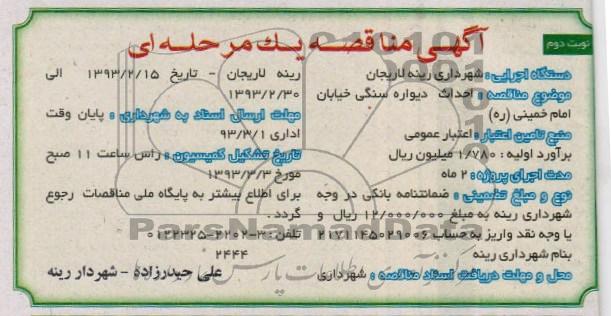 نوبت دوم
آگهی مناقصه یک مرحله ای
دستگاه اجرایی : شهرداری رینه لاریجان
موضوع مناقصه : احداث دیواره سنگی خیابان
امام خمینی (ره)
منبع تامین اعتبار : اعتبار عمومی
برآورد اولیه : ۱/۷۸۰ میلیون ریال
مدت اجرای پروژه : ۲ ماه
نوع و مبلغ تضمینی : ضمانتنامه بانکی در وجه
شهرداری رینه به مبلغ ۱۲/۰۰۰/۰۰۰ ریال و
یا وجه نقد واریز به حساب ۲۱۷۱۱۴۵۰۲۱۰۰۶
بنام شهرداری رینه
محل و مهلت دریافت اسناد مناقصه : شهرداری
رینه لاریجان - تاریخ ۱۳۹۳/۲/۱۵ الی
۱۳۹۳/۲/۳۰
مهلت ارسال اسناد به شهرداری : پایان وقت
اداری ۹۳/۳/۱
تاریخ تشکیل کمیسیون : راس ساعت ۱۱ صبح
مورخ ۱۳۹۳/۳/۳
برای اطلاع بیشتر به پایگاه ملی مناقصات رجوع
گردد.
تلفن: ۳-۲۲۰۲-۰۱۲۲۲۲۵
۲۴۴۴
علی حیدرزاده - شهردار رینه
ParsNamadData